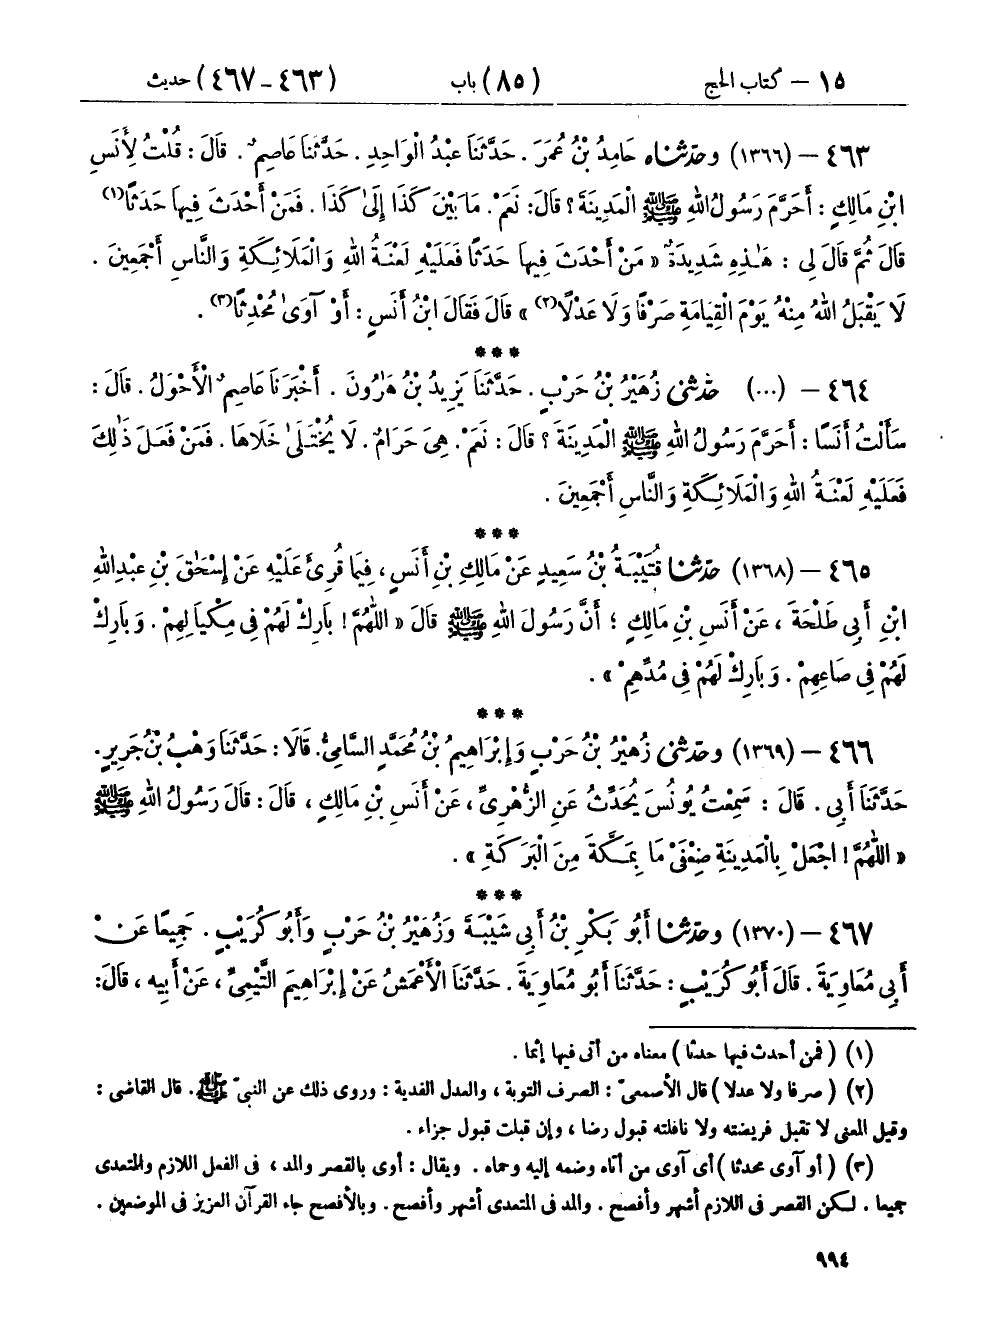 ١٥ – كتاب الحج (٨٥) باب (٤٦٣ - ٤٦٧) حديث
٤٦٣ – (١٣٦٦) وحدّثناه حَامِدُ بْنُ عُمَرَ . حَدَّثَنَا عَبْدُ الْوَاحِدِ . حَدَّثَنَا عَاصِمٌ . قَالَ : قُلْتُ لِأَنَسِ
ابْنِ مَالِكٍ : أَحَرَّمَ رَسُولُ اللهِ ﷺ الْمَدِينَةَ ؟ قَالَ : نَعَمْ . مَا بَيْنَ كَذَا إِلَىٰ كَذَا . فَمَنْ أَحْدَثَ فِيهَا حَدَثًا(١)
قَالَ ثُمَّ قَالَ لِي : هَـٰذِهِ شَدِيدَةٌ « مَنْ أَحْدَثَ فِيهَا حَدَثًا فَعَلَيْهِ لَعْنَةُ اللهِ وَالْمَلَائِكَةِ وَالنَّاسِ أَجْمَعِينَ .
لَا يَقْبَلُ اللهُ مِنْهُ يَوْمَ الْقِيَامَةِ صَرْفًا وَلَا عَدْلًا(٢) » قَالَ فَقَالَ ابْنُ أَنَسٍ : أَوْ آوَىٰ مُحْدِثًا(٣) .
***
٤٦٤ – (...) حدّثنى زُهَيْرُ بْنُ حَرْبٍ . حَدَّثَنَا يَزِيدُ بْنُ هَارُونَ . أَخْبَرَنَا عَاصِمٌ الْأَحْوَلُ . قَالَ :
سَأَلْتُ أَنَسًا : أَحَرَّمَ رَسُولُ اللهِ ﷺ الْمَدِينَةَ ؟ قَالَ : نَعَمْ . هِىَ حَرَامٌ . لَا يُخْتَلَىٰ خَلَاهَا . فَمَنْ فَعَلَ ذَٰلِكَ
فَعَلَيْهِ لَعْنَةُ اللهِ وَالْمَلَائِكَةِ وَالنَّاسِ أَجْمَعِينَ .
***
٤٦٥ – (١٣٦٨) حدّثنا قُتَيْبَةُ بْنُ سَعِيدٍ عَنْ مَالِكِ بْنِ أَنَسٍ ، فِيمَا قُرِئَ عَلَيْهِ عَنْ إِسْحَٰقَ بْنِ عَبْدِ اللهِ
ابْنِ أَبِي طَلْحَةَ ، عَنْ أَنَسِ بْنِ مَالِكٍ ؛ أَنَّ رَسُولَ اللهِ ﷺ قَالَ « اللّٰهُمَّ ! بَارِكْ لَهُمْ فِى مِكْيَالِهِمْ . وَبَارِكْ
لَهُمْ فِى صَاعِهِمْ . وَبَارِكْ لَهُمْ فِى مُدِّهِمْ » .
***
٤٦٦ – (١٣٦٩) وحدّثنى زُهَيْرُ بْنُ حَرْبٍ وَإِبْرَاهِيمُ بْنُ مُحَمَّدٍ السَّامِىُّ . قَالَا : حَدَّثَنَا وَهْبُ بْنُ جَرِيرٍ .
حَدَّثَنَا أَبِى . قَالَ : سَمِعْتُ يُونُسَ يُحَدِّثُ عَنِ الزُّهْرِىِّ ، عَنْ أَنَسِ بْنِ مَالِكٍ ، قَالَ : قَالَ رَسُولُ اللهِ ﷺ
« اللّٰهُمَّ ! اجْعَلْ بِالْمَدِينَةِ ضِعْفَىْ مَا بِمَكَّةَ مِنَ الْبَرَكَةِ » .
***
٤٦٧ – (١٣٧٠) وحدّثنا أَبُو بَكْرِ بْنُ أَبِى شَيْبَةَ وَزُهَيْرُ بْنُ حَرْبٍ وَأَبُو كُرَيْبٍ . جَمِيعًا عَنْ
أَبِى مُعَاوِيَةَ . قَالَ أَبُو كُرَيْبٍ : حَدَّثَنَا أَبُو مُعَاوِيَةَ . حَدَّثَنَا الْأَعْمَشُ عَنْ إِبْرَاهِيمَ التَّيْمِىِّ ، عَنْ أَبِيهِ ، قَالَ :
(١) ( فمن أحدث فيها حدثا ) معناه من أتى فيها إثما .
(٢) ( صرفا ولا عدلا ) قال الأصمعىّ : الصرف التوبة ، والعدل الفدية : وروى ذلك عن النبىّ ﷺ . قال القاضى :
وقيل المعنى لا تقبل فريضته ولا نافلته قبول رضا ، وإن قبلت قبول جزاء .
(٣) ( أو آوى محدثا ) أى آوى من أتاه وضمه إليه وحماه . ويقال : أوى بالقصر والمد ، فى الفعل اللازم والمتعدى
جميعا . لكن القصر فى اللازم أشهر وأفصح . والمد فى المتعدى أشهر وأفصح . وبالأفصح جاء القرآن العزيز فى الموضعين .
٩٩٤